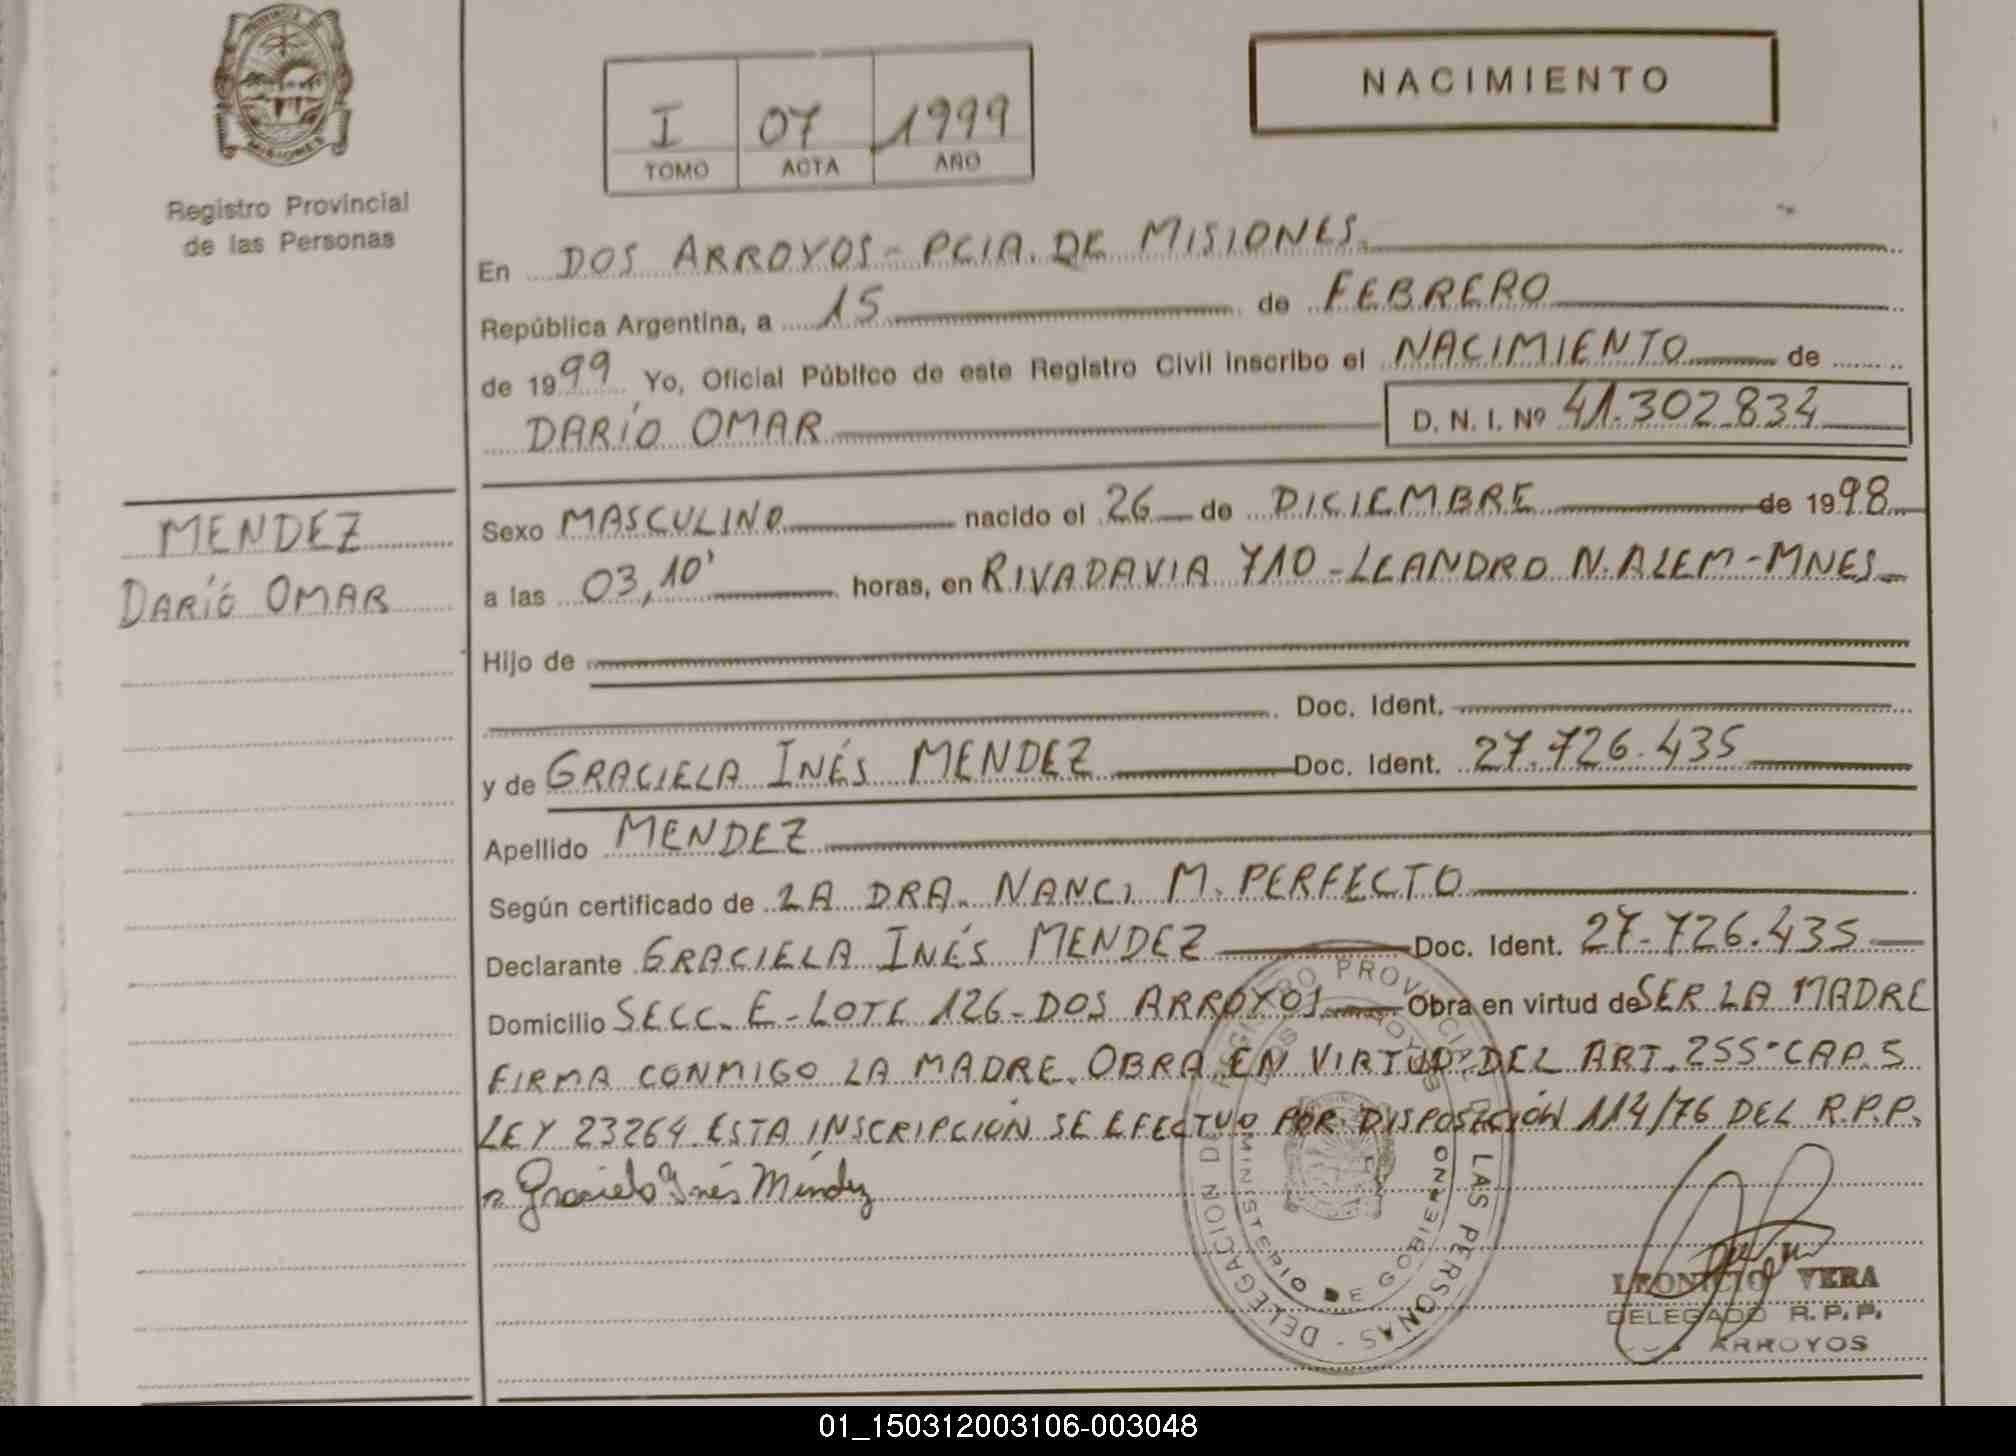 PROVINCIA DE
MISIONES
Registro Provincial
de las Personas
MENDEZ
DARÍO OMAR
I 07 1999
TOMO ACTA AÑO
NACIMIENTO
En DOS ARROYOS - PCIA. DE MISIONES.
República Argentina, a 15 de FEBRERO
de 1999 Yo, Oficial Público de este Registro Civil inscribo el NACIMIENTO de
DARÍO OMAR D. N. I. Nº 41.302.834
Sexo MASCULINO nacido el 26 de DICIEMBRE de 1998
a las 03,10' horas, en RIVADAVIA 710 - LEANDRO N. ALEM - MNES
Hijo de
Doc. Ident.
y de GRACIELA INÉS MENDEZ Doc. Ident. 27.726.435
Apellido MENDEZ
Según certificado de LA DRA. NANCI M. PERFECTO
Declarante GRACIELA INÉS MENDEZ Doc. Ident. 27.726.435
Domicilio SECC. E - LOTE 126 - DOS ARROYOS Obra en virtud de SER LA MADRE
FIRMA CONMIGO LA MADRE. OBRA EN VIRTUD DEL ART. 255° CAP. 5
LEY 23264. ESTA INSCRIPCIÓN SE EFECTUO POR DISPOSICIÓN 114/76 DEL R.P.P.
Graciela Inés Méndez
REGISTRO PROVINCIAL DE LAS PERSONAS - DELEGACION
DOS ARROYOS
MINISTERIO DE GOBIERNO
LEONICIO VERA
DELEGADO R.P.P.
ARROYOS
01_150312003106-003048